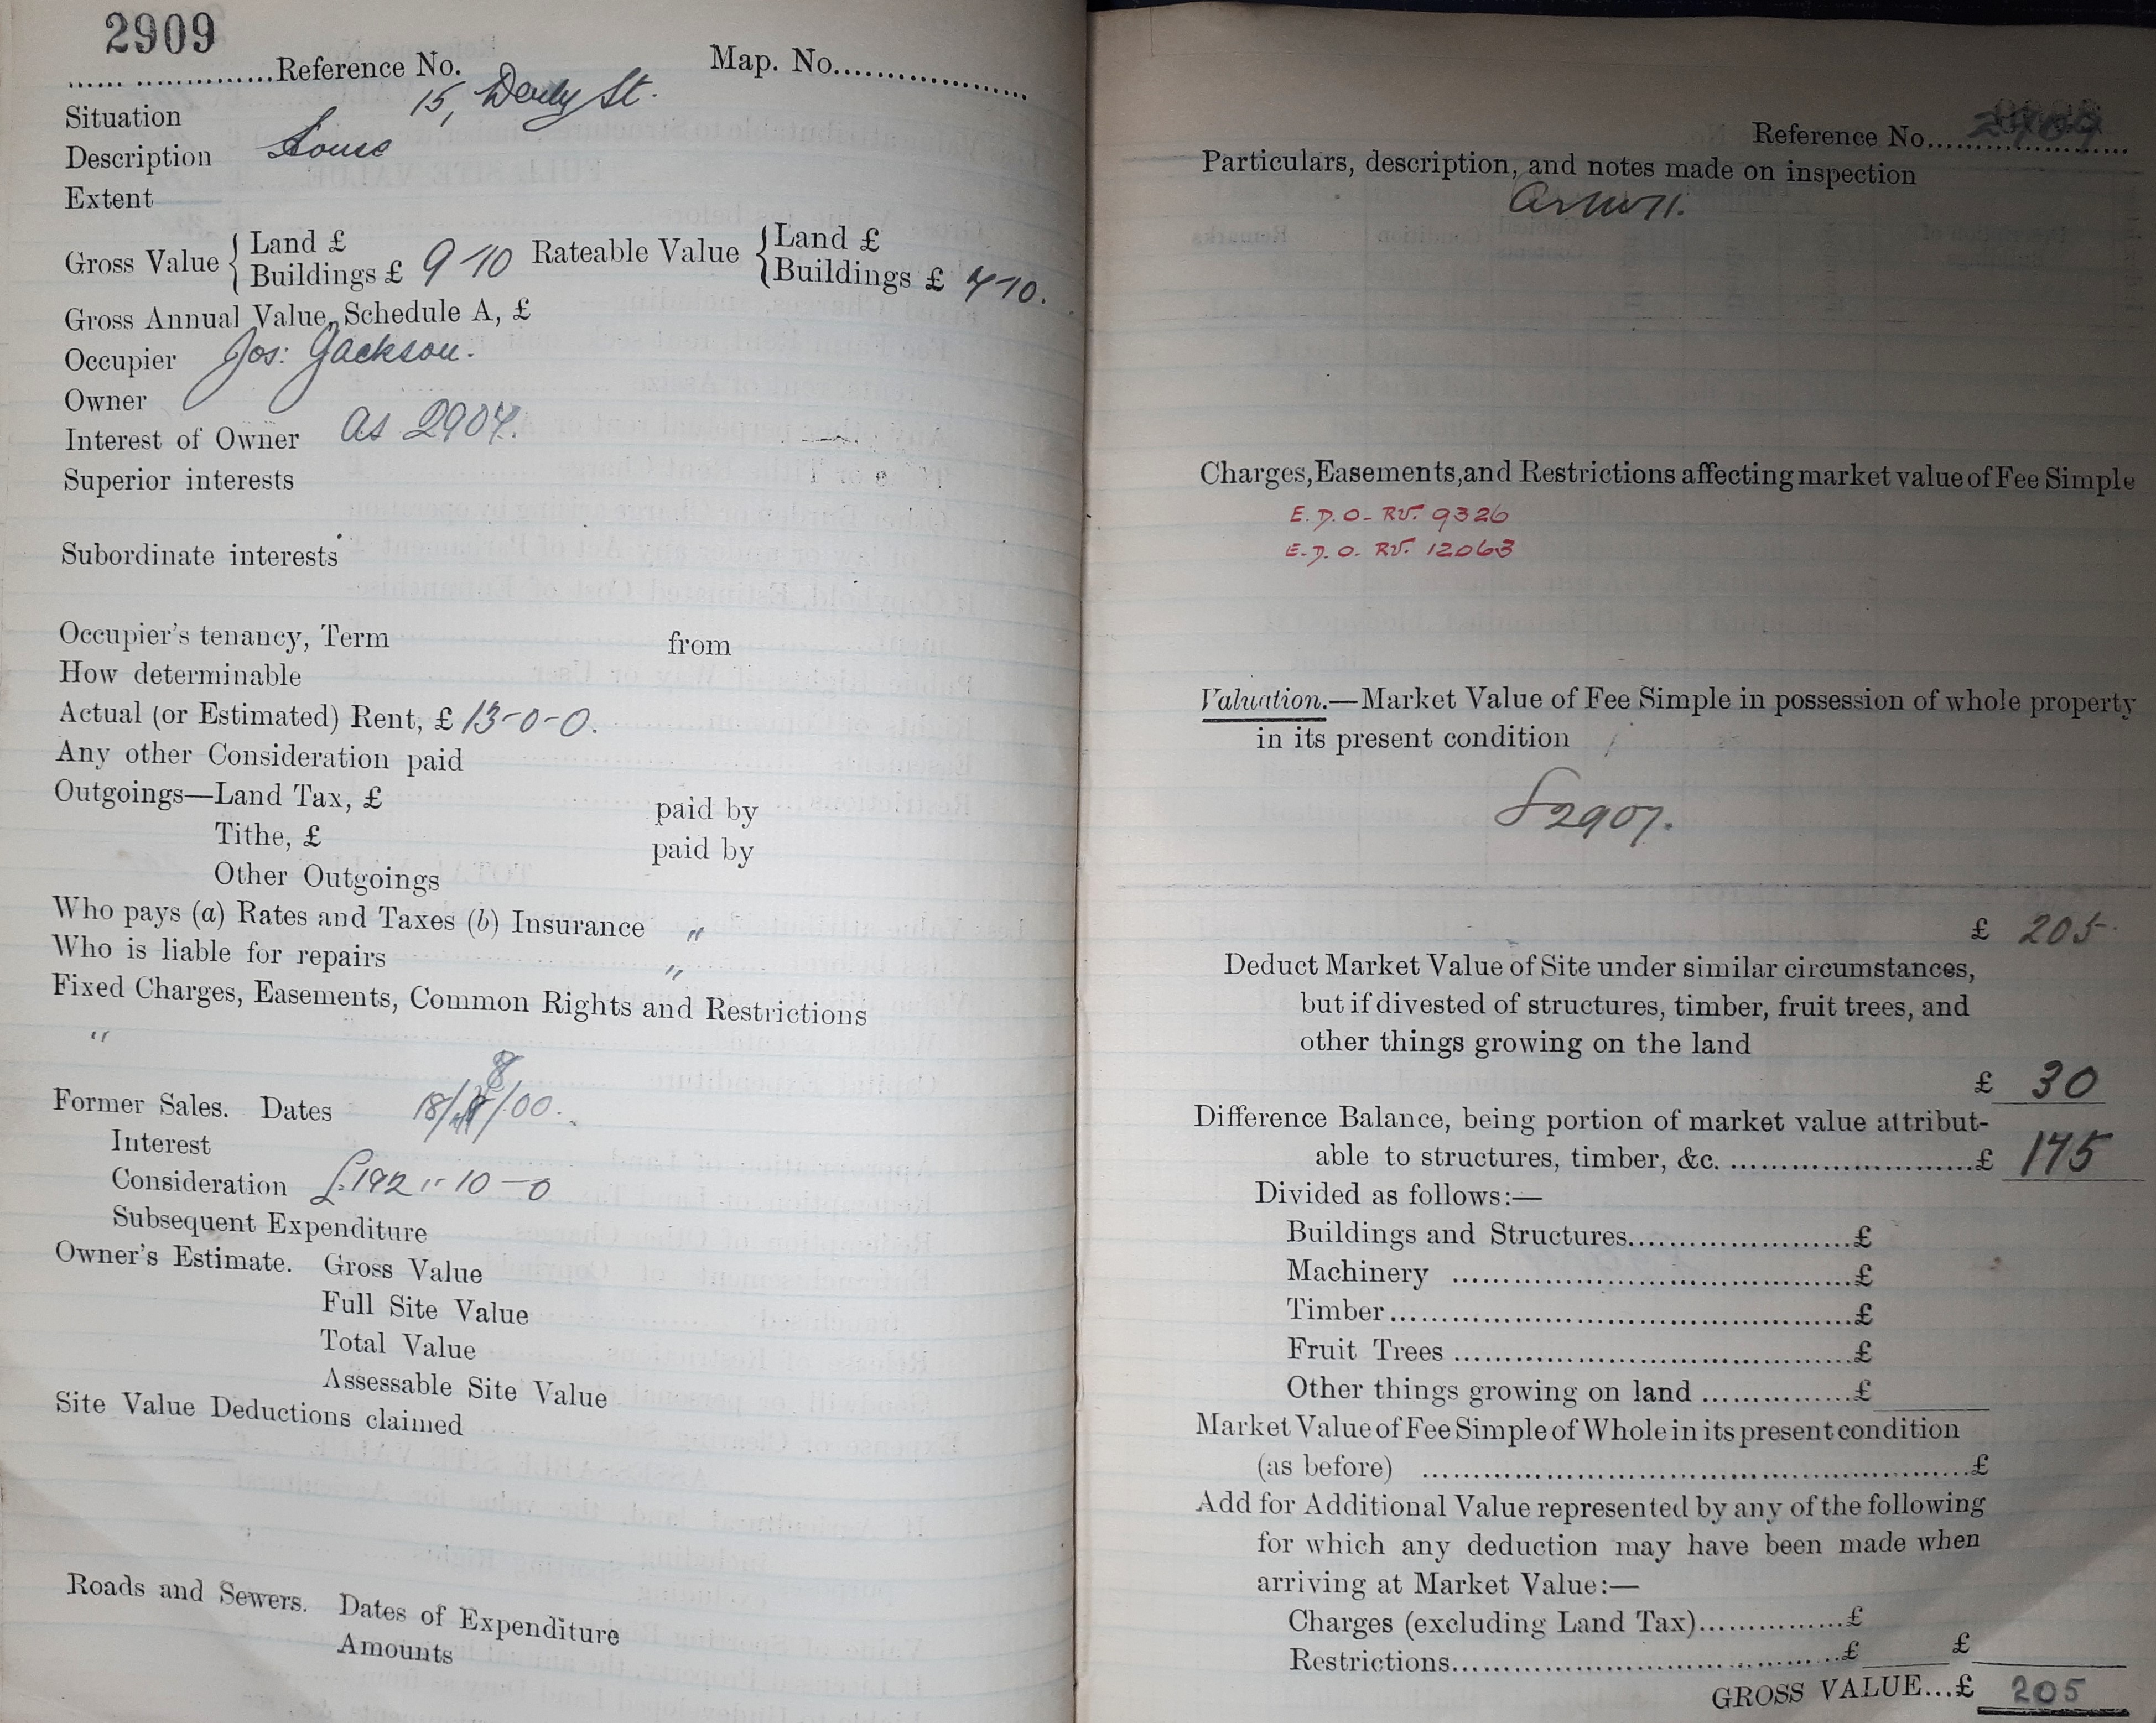 2909
Reference No. Map. No.
Situation 15, Derby St.
Description House
Extent
Gross Value { Land £ Rateable Value { Land £
Buildings £ 9-10 Buildings £ 7-10.
Gross Annual Value, Schedule A, £
Occupier Jos: Jackson.
Owner
Interest of Owner as 2907.
Superior interests
Subordinate interests
Occupier's tenancy, Term from
How determinable
Actual (or Estimated) Rent, £ 13-0-0.
Any other Consideration paid
Outgoings—Land Tax, £ paid by
Tithe, £ paid by
Other Outgoings
Who pays (a) Rates and Taxes (b) Insurance "
Who is liable for repairs "
Fixed Charges, Easements, Common Rights and Restrictions
"
Former Sales. Dates 18/8/00.
Interest
Consideration £192 " 10 - 0
Subsequent Expenditure
Owner's Estimate. Gross Value
Full Site Value
Total Value
Assessable Site Value
Site Value Deductions claimed
Roads and Sewers. Dates of Expenditure
Amounts
Reference No. 2909
Particulars, description, and notes made on inspection
Charges, Easements, and Restrictions affecting market value of Fee Simple
E.D.O. RV. 9326
E.D.O. RV. 12063
Valuation.—Market Value of Fee Simple in possession of whole property
in its present condition
2907.
£ 205
Deduct Market Value of Site under similar circumstances,
but if divested of structures, timber, fruit trees, and
other things growing on the land
£ 30
Difference Balance, being portion of market value attribut-
able to structures, timber, &c. £ 175
Divided as follows:—
Buildings and Structures £
Machinery £
Timber £
Fruit Trees £
Other things growing on land £
Market Value of Fee Simple of Whole in its present condition
(as before) £
Add for Additional Value represented by any of the following
for which any deduction may have been made when
arriving at Market Value:—
Charges (excluding Land Tax) £
Restrictions £ £
GROSS VALUE...£ 205